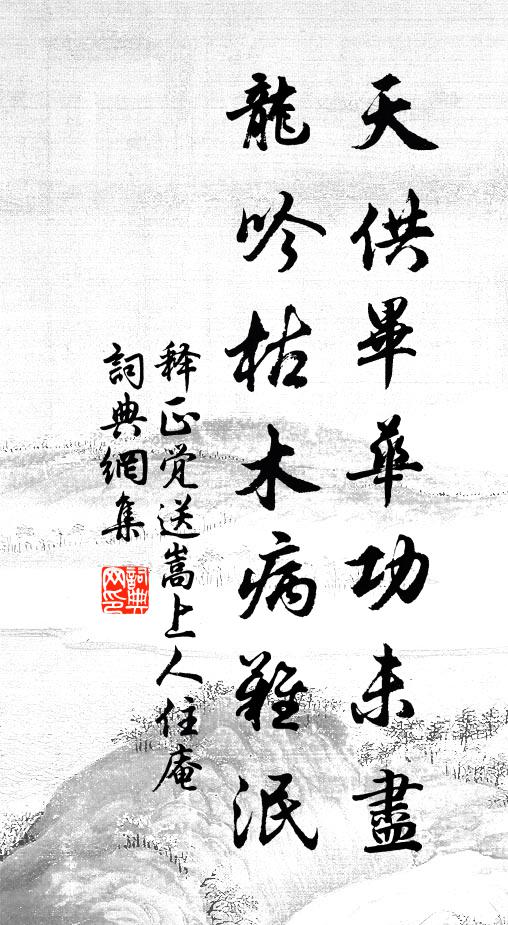 天供畢華功未盡
龍吟枯木病難泯
释正觉送嵩上人住庵
詞典網集
詞典网印